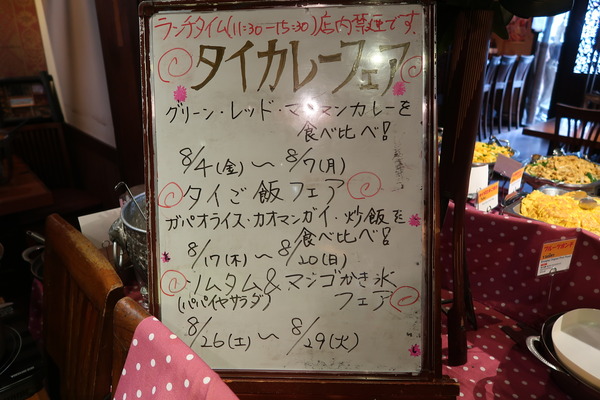 ランチタイム(11:30-15:30)店内禁煙です。
タイカレーフェア
グリーン・レッド・マッサマンカレーを
食べ比べ!
8/4(金)〜8/7(月)
タイご飯フェア
ガパオライス・カオマンガイ・炒飯を
食べ比べ!
8/17(木)〜8/20(日)
ソムタム&マンゴかき氷
(パパイヤサラダ) フェア
8/26(土)〜8/29(火)